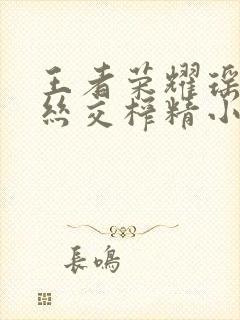 王者荣耀瑶
丝交榨精小
長鳴